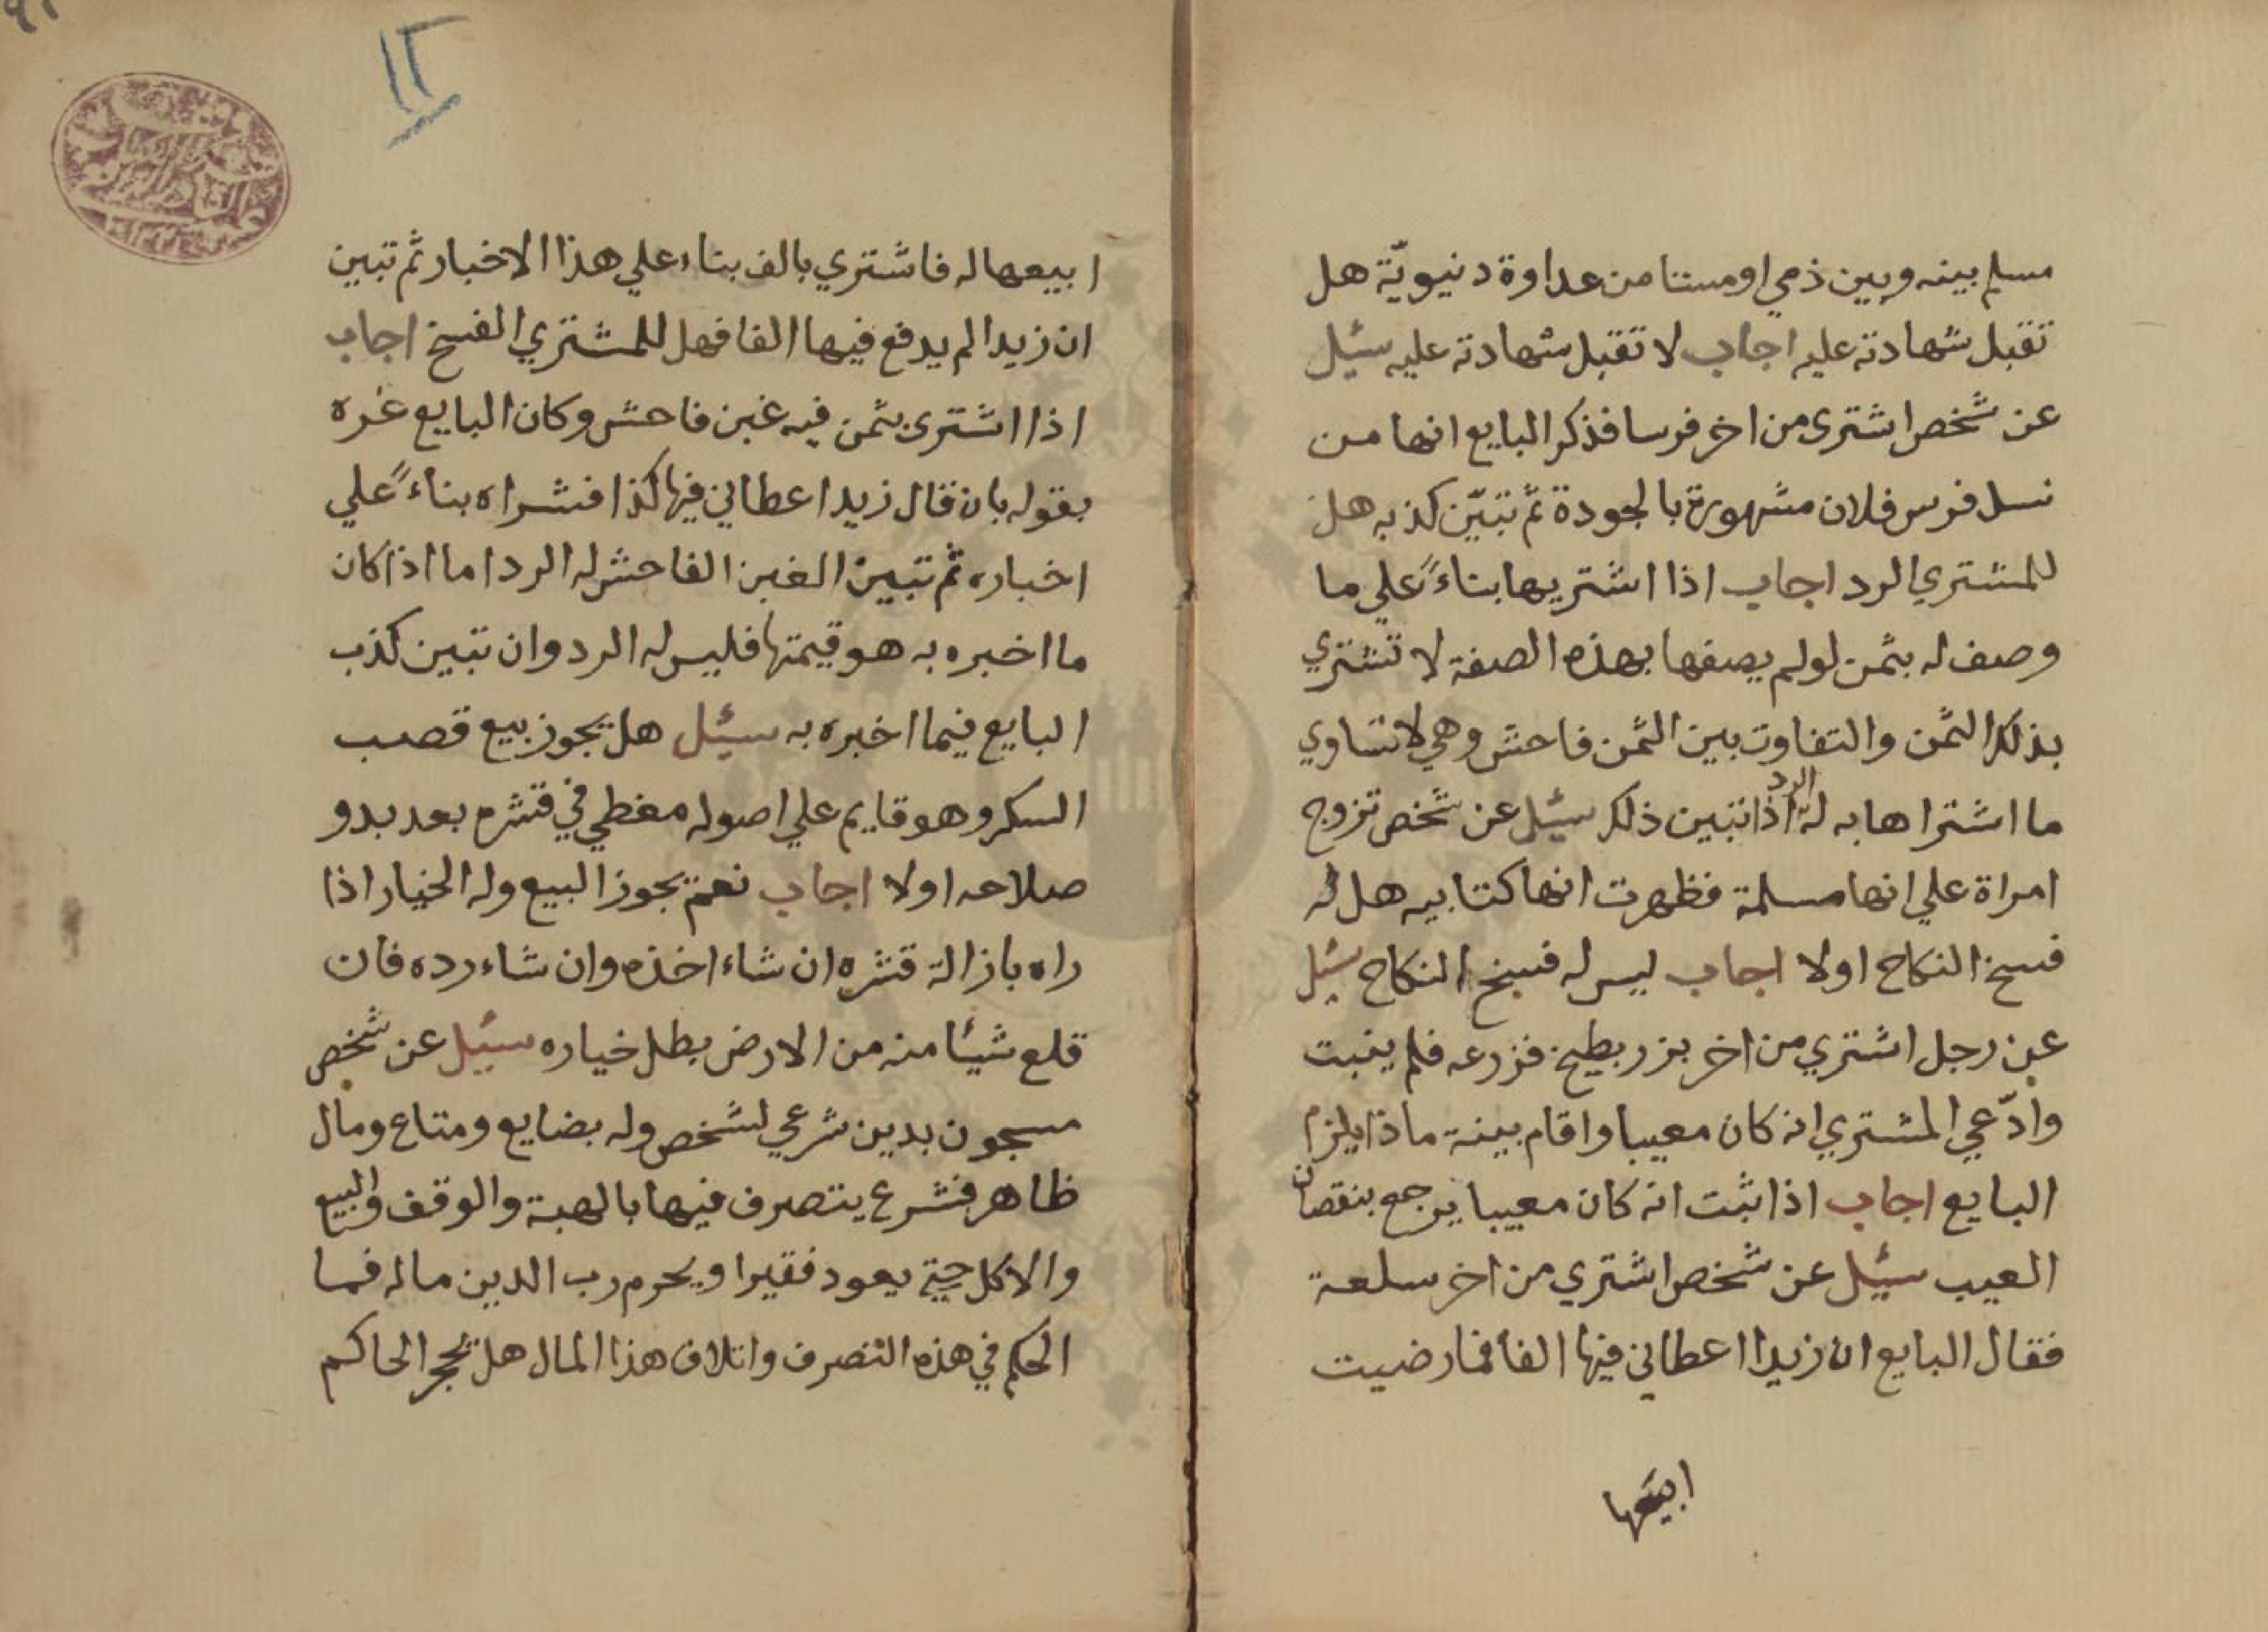 مسلم بينه وبين ذمي او مستامن عداوة دنيويّة هل
تقبل شهادته عليه اجاب لا تقبل شهادته عليه سئيل
عن شخص اشترى من اخر فرسا فذكر البايع انها من
نسل فرس فلان مشهورة بالجودة ثم تبيّن كذبه هل
للمشتري الرد اجاب اذا اشتريها بناءً علي ما
وصف له بثمن لو لم يصفها بهذه الصفة لا تشتري
بذلك الثمن والتفاوت بين الثمن فاحش وهي لا تساوي
ما اشتراها به له الرد اذا تبين ذلك سئيل عن شخص تزوج
امراة علي انها مسلمة فظهرت انها كتابيه هل له
فسخ النكاح اولا اجاب ليس له فسخ النكاح سئيل
عن رجل اشتري من اخر بزر بطيخ فزرعه فلم ينبت
وادّعي المشتري انه كان معيبا واقام بينة ماذا يلزم
البايع اجاب اذا ثبت انه كان معيبا يرجع بنقصان
العيب سئيل عن شخص اشتري من اخر سلعة
فقال البايع ان زيدا اعطاني فيها الفا فمارضيت
ابيعها
١٢
ابيعها له فاشتري بالف بناء علي هذا الاخبار ثم تبين
ان زيدا لم يدفع فيها الفا فهل للمشتري الفسخ اجاب
اذا اشترى بثمن فيه غبن فاحش وكان البايع غره
بقوله بان قال زيد اعطاني فيها كذا فشراه بناءً علي
اخباره ثم تبين الغبن الفاحش له الرد اما اذا كان
ما اخبره به هو قيمتها فليس له الرد وان تبين كذب
البايع فيما اخبره به سئيل هل يجوز بيع قصب
السكر وهو قايم علي اصوله مغطي في قشره بعد بدو
صلاحه اولا اجاب نعم يجوز البيع وله الخيار اذا
راه بازالة قشره ان شاء اخذه وان شاء رده فان
قلع شيئا منه من الارض بطل خياره سئيل عن شخص
مسجون بدين شرعي لشخص وله بضايع ومتاع ومال
ظاهر فشرع يتصرف فيها بالهبة والوقف والبيع
والاكل حتي يعود فقيرا ويحرم رب الدين ماله فما
الحكم في هذه التصرف واتلاف هذا المال هل يحجر الحاكم